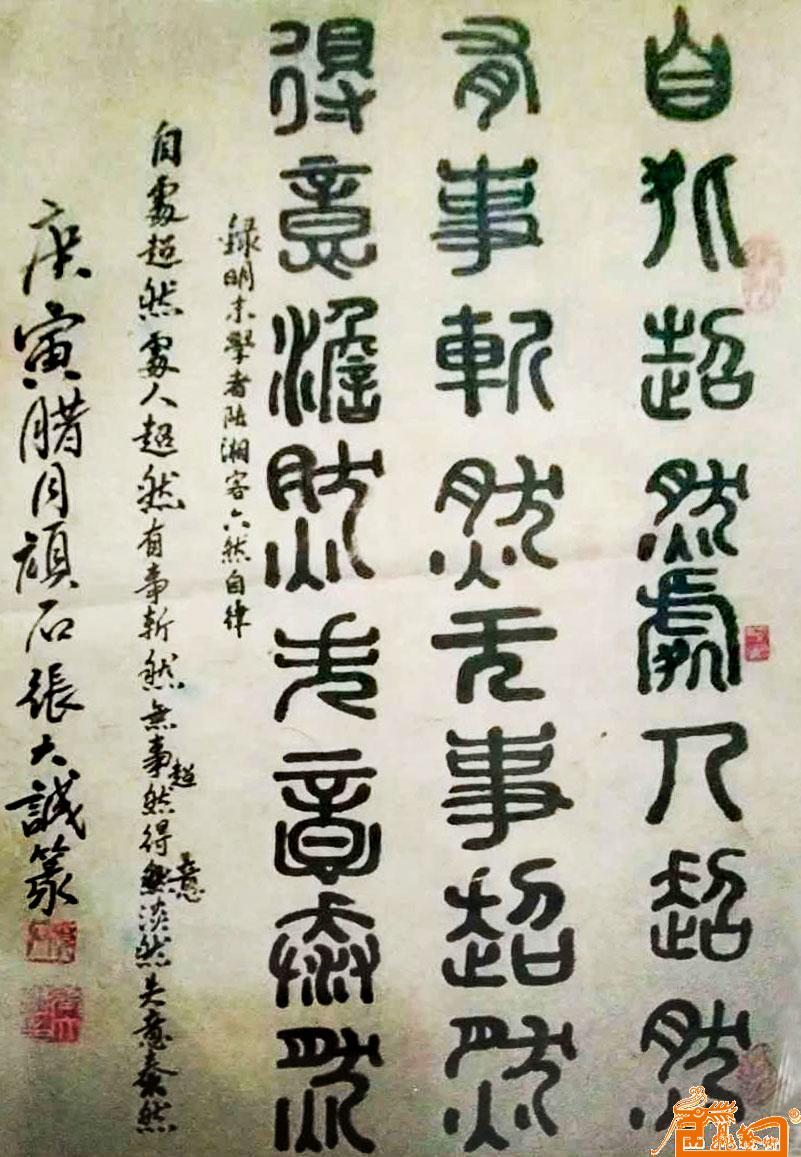 自超然處人超然
有事斬然无事超然
得意澹然失意泰然
錄明末學者陆湘客六然自律
自處超然處人超然有事斬然無事超然得意淡然失意泰然
庚寅腊月頑石張大誠篆